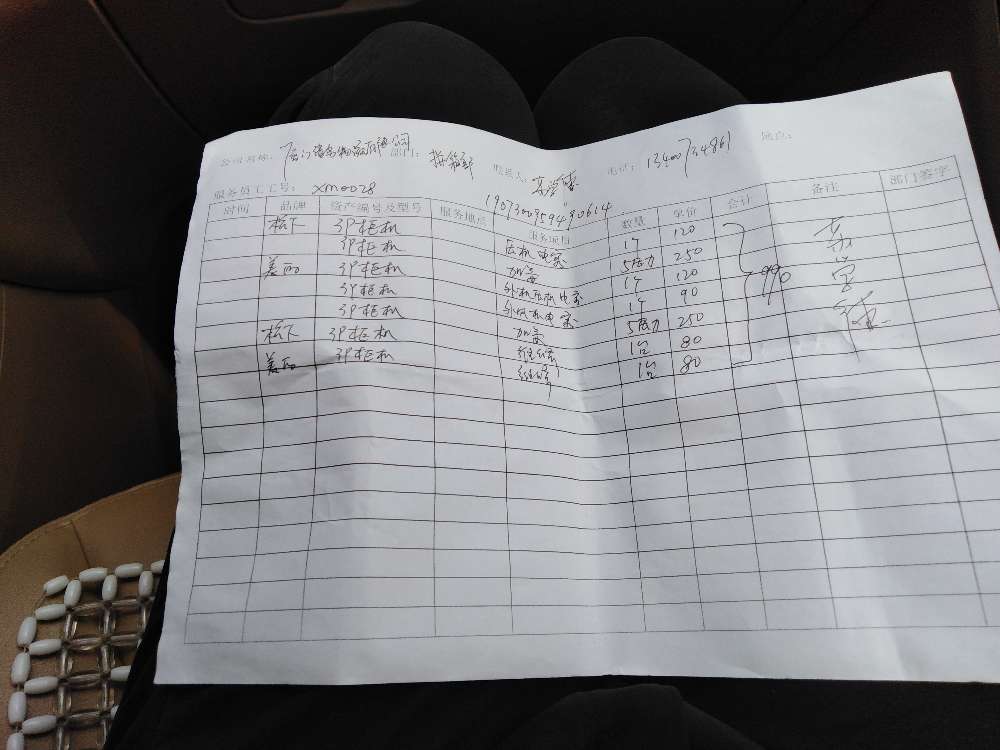 公司名称： 厦门 有限公司 部门： 拼箱部 联系人： 电话： 13400734861 地点：
服务员工工号： xm0028 1907300959490614
时间 品牌 资产编号及型号 服务地点 服务项目 数量 单价 合计 备注 部门签字
松下 3P柜机 压机电容 1个 120
3P柜机 加氟 5压力 250
美的 3P柜机 外机压机电容 1个 120
3P柜机 外风机电容 1个 90
3P柜机 加氟 5压力 250
松下 3P柜机 维修 1台 80
美的 3P柜机 维修 1台 80
990